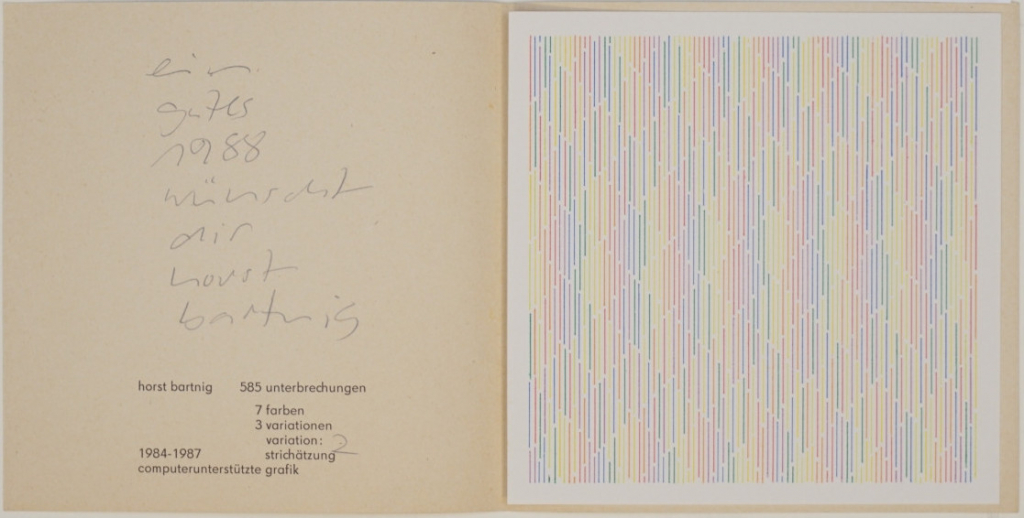 ein
gutes
1988
wünscht
dir
horst
bartnig
horst bartnig 585 unterbrechungen
7 farben
3 variationen
variation: 2
1984-1987 strichätzung
computerunterstützte grafik